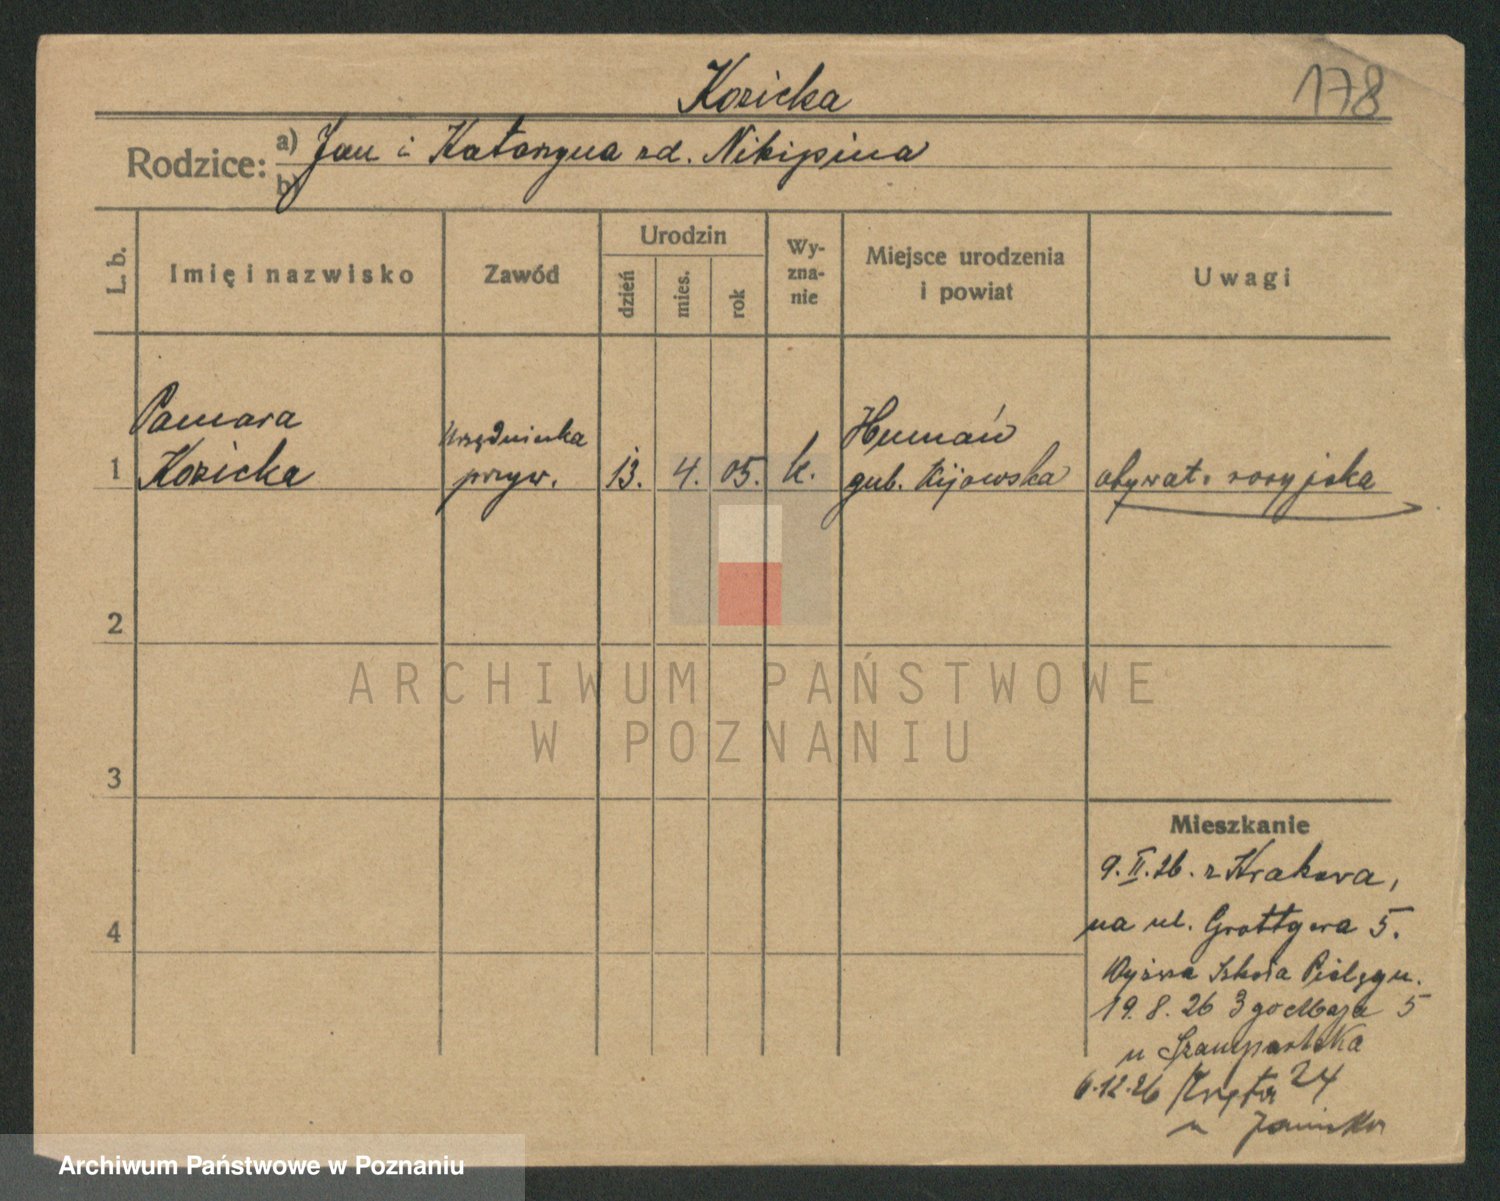 Kozicka
178
Rodzice: a) Jan i Katarzyna zd. Nikipina
b)
L. b.
Imię i nazwisko
Zawód
Urodzin
dzień
mies.
rok
Wy-
zna-
nie
Miejsce urodzenia
i powiat
Uwagi
1
Tamara
Kozicka
Urzędniczka
pryw.
13. 4. 05. k.
Humań
gub. Kijowska
obywat. rosyjska
2
3
4
ARCHIWUM PAŃSTWOWE
W POZNANIU
Mieszkanie
9. II. 26. z Krakowa,
na ul. Grottgera 5.
Wyższa Szkoła Pielęgn.
19. 8. 26 3 go Maja 5
u
6.12.26 Kręta 24
u
Archiwum Państwowe w Poznaniu